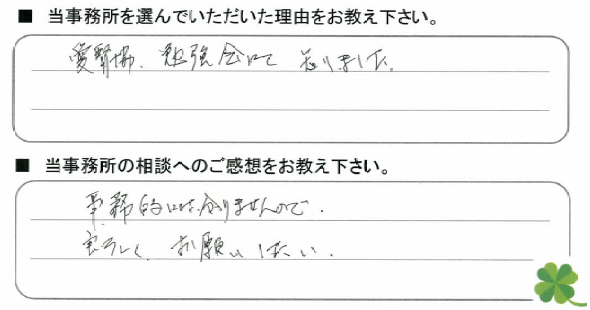 ■ 当事務所を選んでいただいた理由をお教え下さい。
愛腎協、勉強会にて知りました。
■ 当事務所の相談へのご感想をお教え下さい。
事務的には分りませんので、
宜ろしく、お願いしたい。